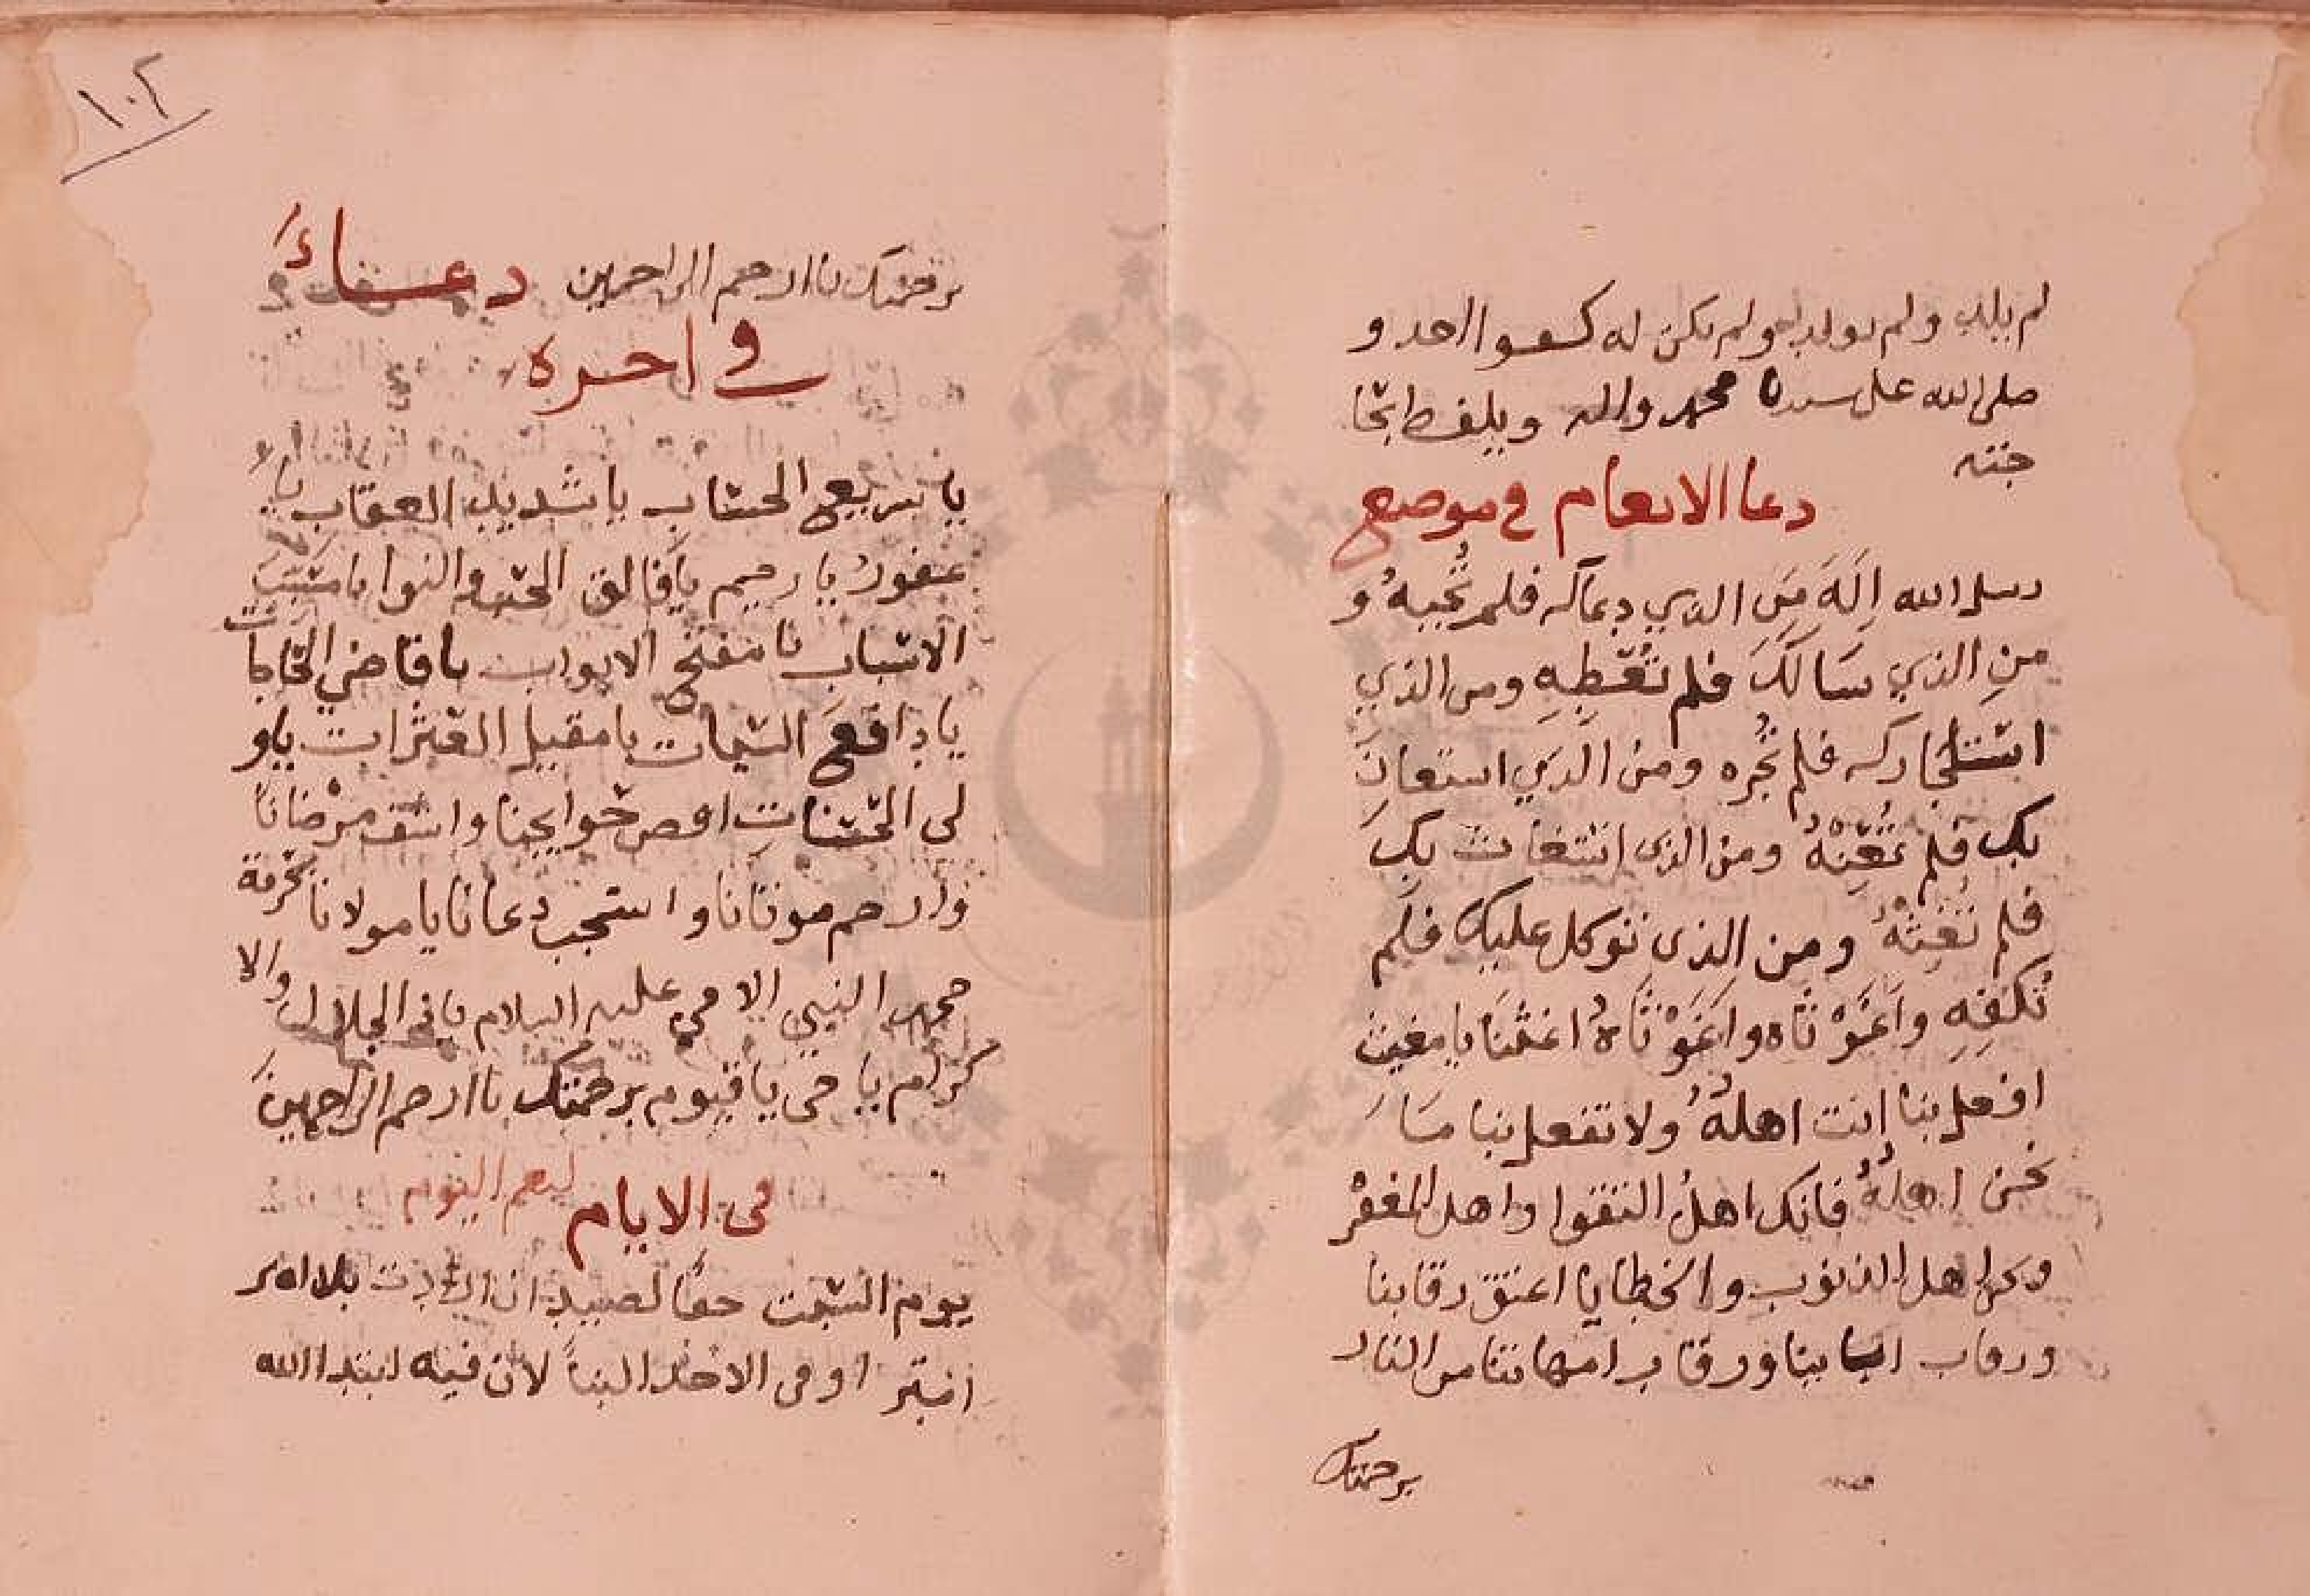 لم يلد ولم يولد ولم يكن له كفوا احد و
صلى الله على سيدنا محمد واله ويلفظ
دعا الانعام في موضع
رسل الله اله من الذي دعاك فلم تجيبه و
من الذي سالك فلم تعطيه ومن الذي
استجارك فلم تجره ومن الذي استعان
بك فلم تعينه ومن الذي استغاث بك
فلم تغيثه ومن الذي توكل عليك فلم
تكفيه واغوثاه واغوثاه اغثنا يا مغيث
افعل بنا انت اهله ولا تفعل بنا ما
نحن اهله فانك اهل التقوا واهل المغفر
ونحن اهل الذنوب والخطايا اعتق رقابنا
ورقاب ابابينا ورقاب امهاتنا من النار
برحمتك
١٠٢
برحمتك يا ارحم الراحمين دعاء
في اخره
يا سريع الحساب يا شديد العقاب يا
غفور يا رحيم يا فالق الحبه والنوا يا مسبب
الاسباب يا مفتح الابواب يا قاضي الحاجات
يا دافع السيات يا مقيل العثرات ياو
لي الحسنات اقض حوايجنا واشف مرضانا
وارحم موتانا واستجب دعانا يا مولانا بحرمة
محمد النبي الامي عليه السلام يا ذا الجلال والا
كرام يا حي يا قيوم برحمتك يا ارحم الراحمين
في الايام لنعم اليوم
يوم السبت حقا لصيد ان اردت بلا امتر
او في الاحد البنا لان فيه ابتدا الله